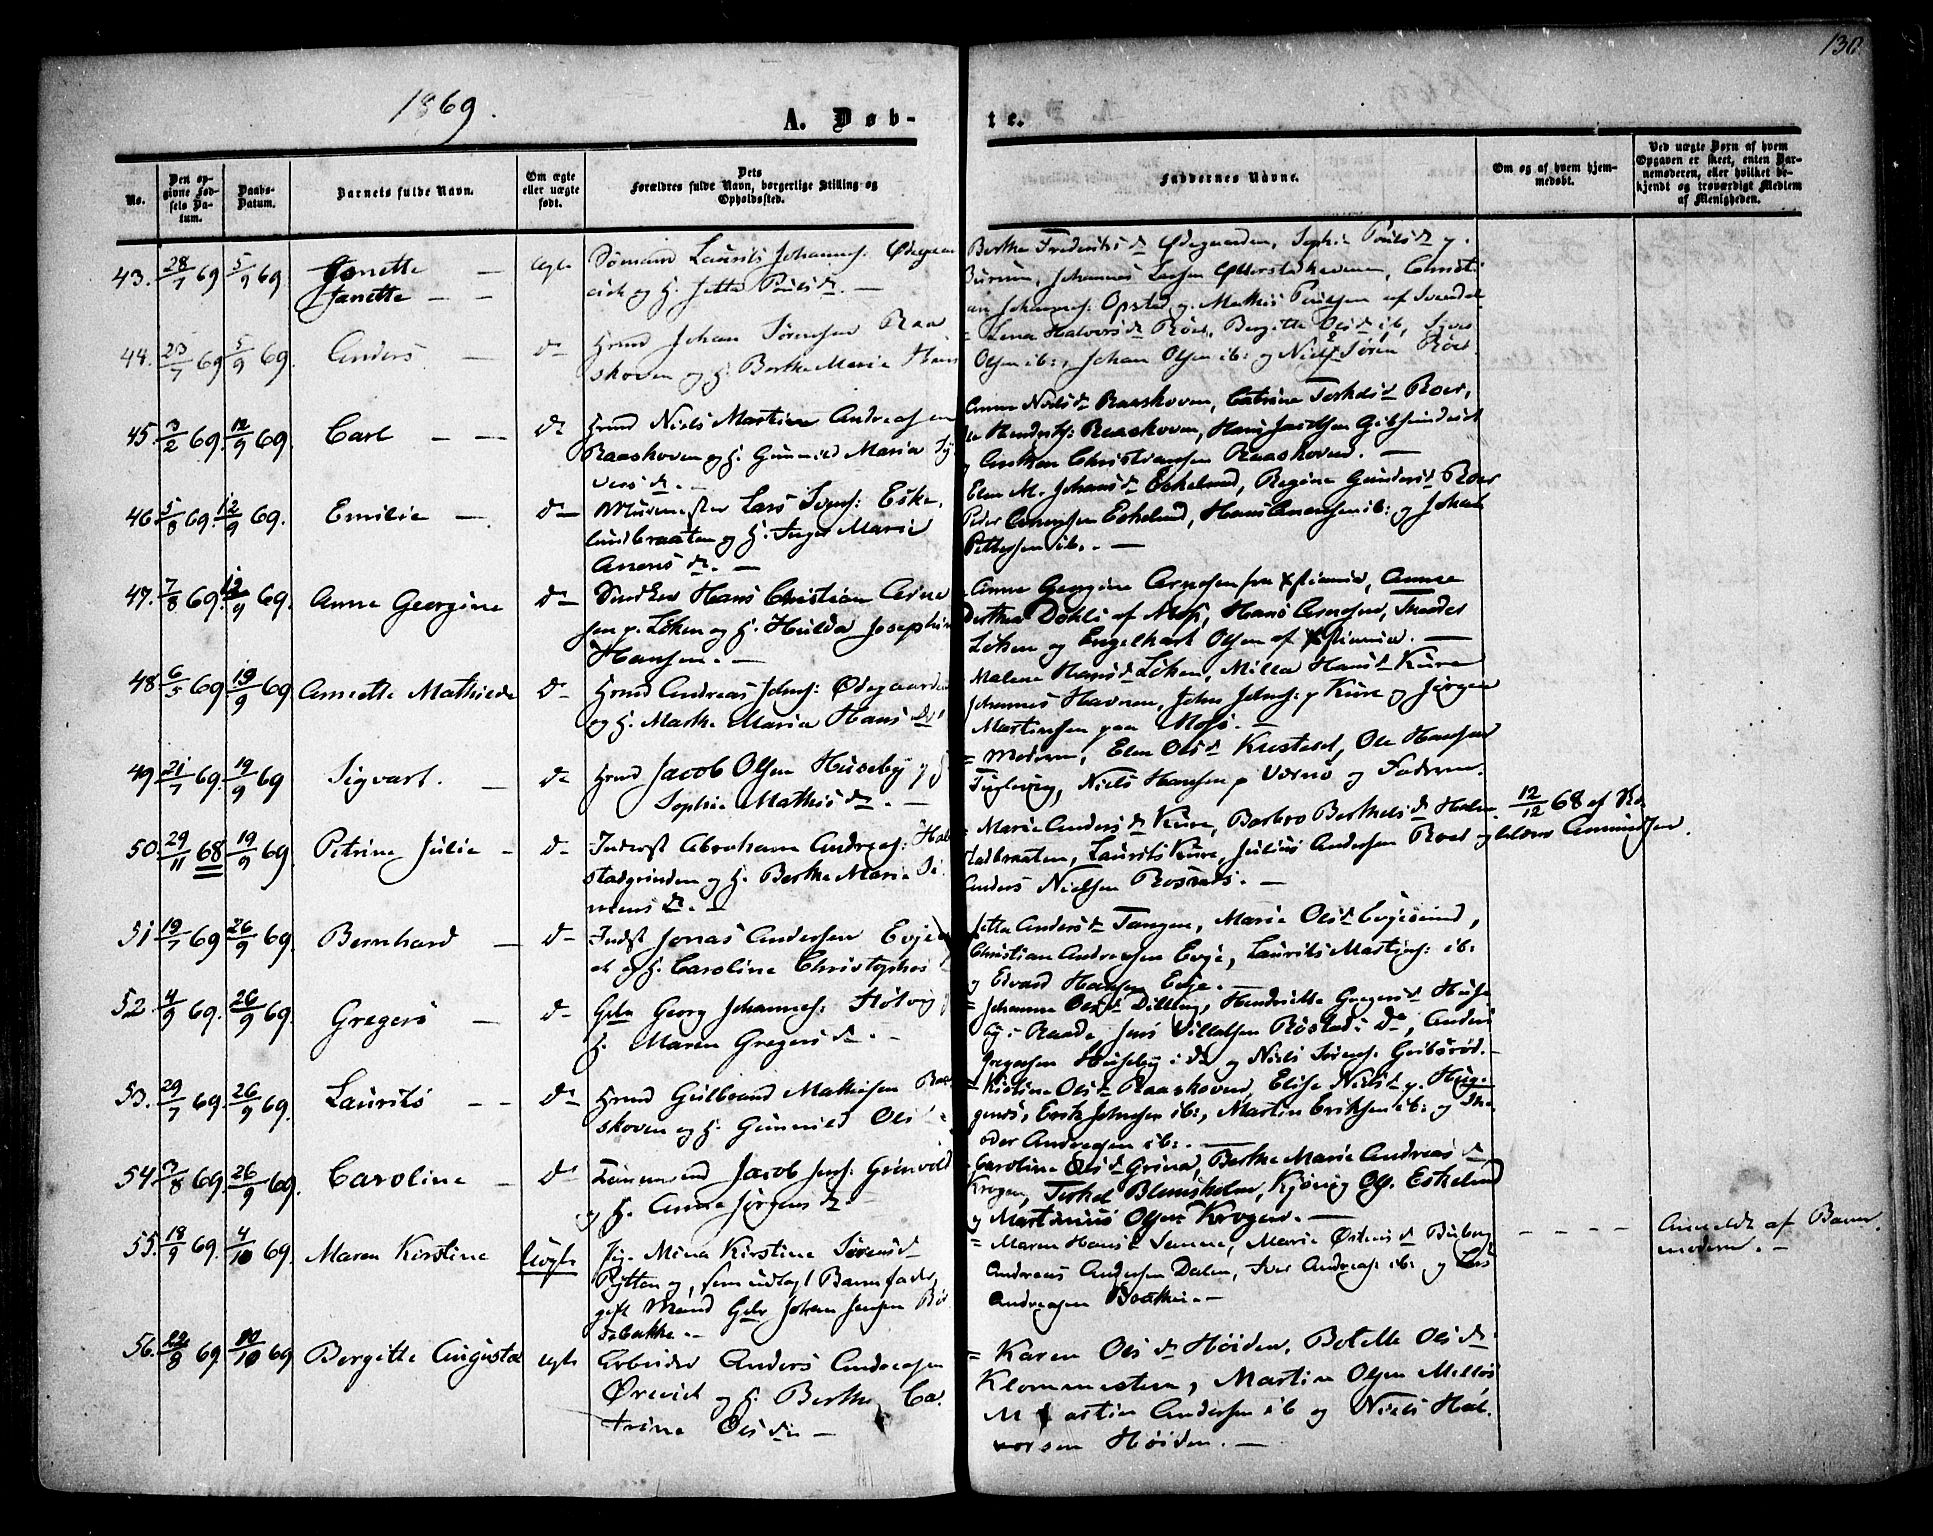 130.
1869.
A. Døb-
te.
No.
Den op-
givne Fød-
sels Da-
tum.
Daabs-
Datum.
Barnets fulde Navn.
Om ægte
eller uægte
født.
Dets
Forældres fulde Navn, borgerlige Stilling og
Opholdssted.
Faddernes Navne.
Om og af hvem hjem-
medøbt.
Ved uægte Børn af hvem
Opgaven er skeet, enten Bar-
nemoderen, eller hvilket be-
kjendt og troværdigt Medlem
af Menigheden.
43. 28/7 69 5/9 69 Janette
Janette
Ægte
Sømand Laurits Johannes:
og h. Jette Pouls d. —
Berthe Frederiks d. Ødegaarden, Sophie Pouls d. p.
Johannes
Johannes: Opstad og Mathis Poulsen af
44. 23/7 69 5/9 69 Anders — do
Grmd Johan Sørensen Raa
skoven og h. Berthe Marie Hans
Lena Halvors d. Roer, Bergitte Ols d. ib,
Olsen ib:, Johan Olsen ib: og Niels Søren Roer
45. 3/2 69 12/9 69. Carl — — do
Grmd Niels Martin Andreasen
Raaskoven og h. Gunnild Maria Sy
vers d. —
Anne Niels d. Raaskoven, Catrine Terkels d. Roer,
Hendriks: Raaskoven, Hans Jacobsen
og Christiansen Raaskoven. —
46. 5/8 69 12/9 69. Emilie — do
Murmester Lars Svens: Eske
lundbraaten og h. Inger Marie
Aners d. —
Elen M. Johans d. Eskelund, Regine Gunders d. Roer
Peder Arnesen Eskelund, Hans Arnesen ib: og Johan
Pettersen ib. —
47. 7/8 69. 12/9 69. Anne Georgine do
Snedker Hans Christian Arne
sen p. Løken og h. Hulda Josephine
Hansen. —
Anne Georgine Arnesen fra Xstiania, Anne
Dorthea Dahli af Moss, Hans Arnesen,
Løken og Engelhart Olsen af Xstiania. —
48. 6/5 69 19/9 69 Annette Mathilde do
Grmd Andreas Johns: Ødegaarden
og h. Marthe Maria Hans d.
Malene Hans d. Løken, Milla Hans d. Kure
Johannes Havnen, John Johns: p Kure og Jørgen
Martinsen paa Moss. —
49 21/7 69. 19/9 69 Sigvart. — do
Grmd Jacob Olsen Huseby og h
Sophie Mathis d. —
= Moderen, Elen Ols d. Krosted, Ole Hansen
Fuglevig, Niels Hansen p Værnø og Faderen.
50 29/11 68 19/9 69 Petrine Julie — do
Inderst Abraham Andreas: Hal
stadgrinden og h. Berthe Marie Si
mens d. —
Marie Anders d. Kure, Barbro Berthels d. Hal
stadbraaten, Laurits Kure, Julius Andersen Roer og
Anders Nielsen Rosnæs. —
12/12 68 af
Amundsen.
51 19/7 69 26/9 69. Bernhard — do
Indst Jonas Andersen Evje
og h. Caroline Christophers
Jette Anders d. Tangen, Marie Ols d. Evjesund,
Christian Andreasen Evje, Laurits Martins: ib:
og Edvard Hansen Evje.
52. 4/9 69. 26/9 69. Gregers — do
Gbr Georg Johannes: Fløtvig
h. Maren Gregers d. —
= Johanne Ols d. Dilling, Hendrikke Gregers d. Huse
by i Raade Jens Villatsen Røstad i do, Anders
Gregersen Huseby i do og Niels Sørens: Gribsrød.
53. 29/7 69. 26/9 69. Laurits — — do
Grmd Gulbrand Mathisen Raa
skoven og h. Gunnild Ols
Kistine Ols d. Raaskoven, Elise Niels d. p. Hyg
gens, Erik Johnsen ib:, Martin Eriksen ib: og The
odor Andreasen ib:. —
54. 3/8 69. 26/9 69. Caroline — do
Tømmermd Jacob Jens: Grinvold
og h. Anne Jørgens d. —
= Caroline Ols d. Grina, Berthe Marie Andreas d.
Krogen, Terkel Blomsholm, Kjønig Ols. Eskelund
og Martinius Olsen Krogen. —
55. 18/9 69. 4/10 69. Maren Kirstine Uægte
Pig. Mina Kirstine Sørens d
Rytten og, som udlagt Barnefader,
gift Mand Gbr Johan Jensen
bakke. —
= Maren Hans d. Sanne, Marie Østens d. Buberg
Andreas Andersen Dalen, Iver Andreas: ib: og Lars
Andreasen Bakke. —
— — — —
Anmeldt af Barne
moderen. —
56. 22/8 69. 10/10 69 Bergitte Augusta ægte
Arbeider Anders Andreasen
Ørevik og h. Berthe Ca
trine Ols d. —
= Karen Ols d. Høiden, Botelle Ols d.
Klommesteen, Martin Olsen Melløs
Martin Andersen ib og Niels Hal
vorsen Høiden. —